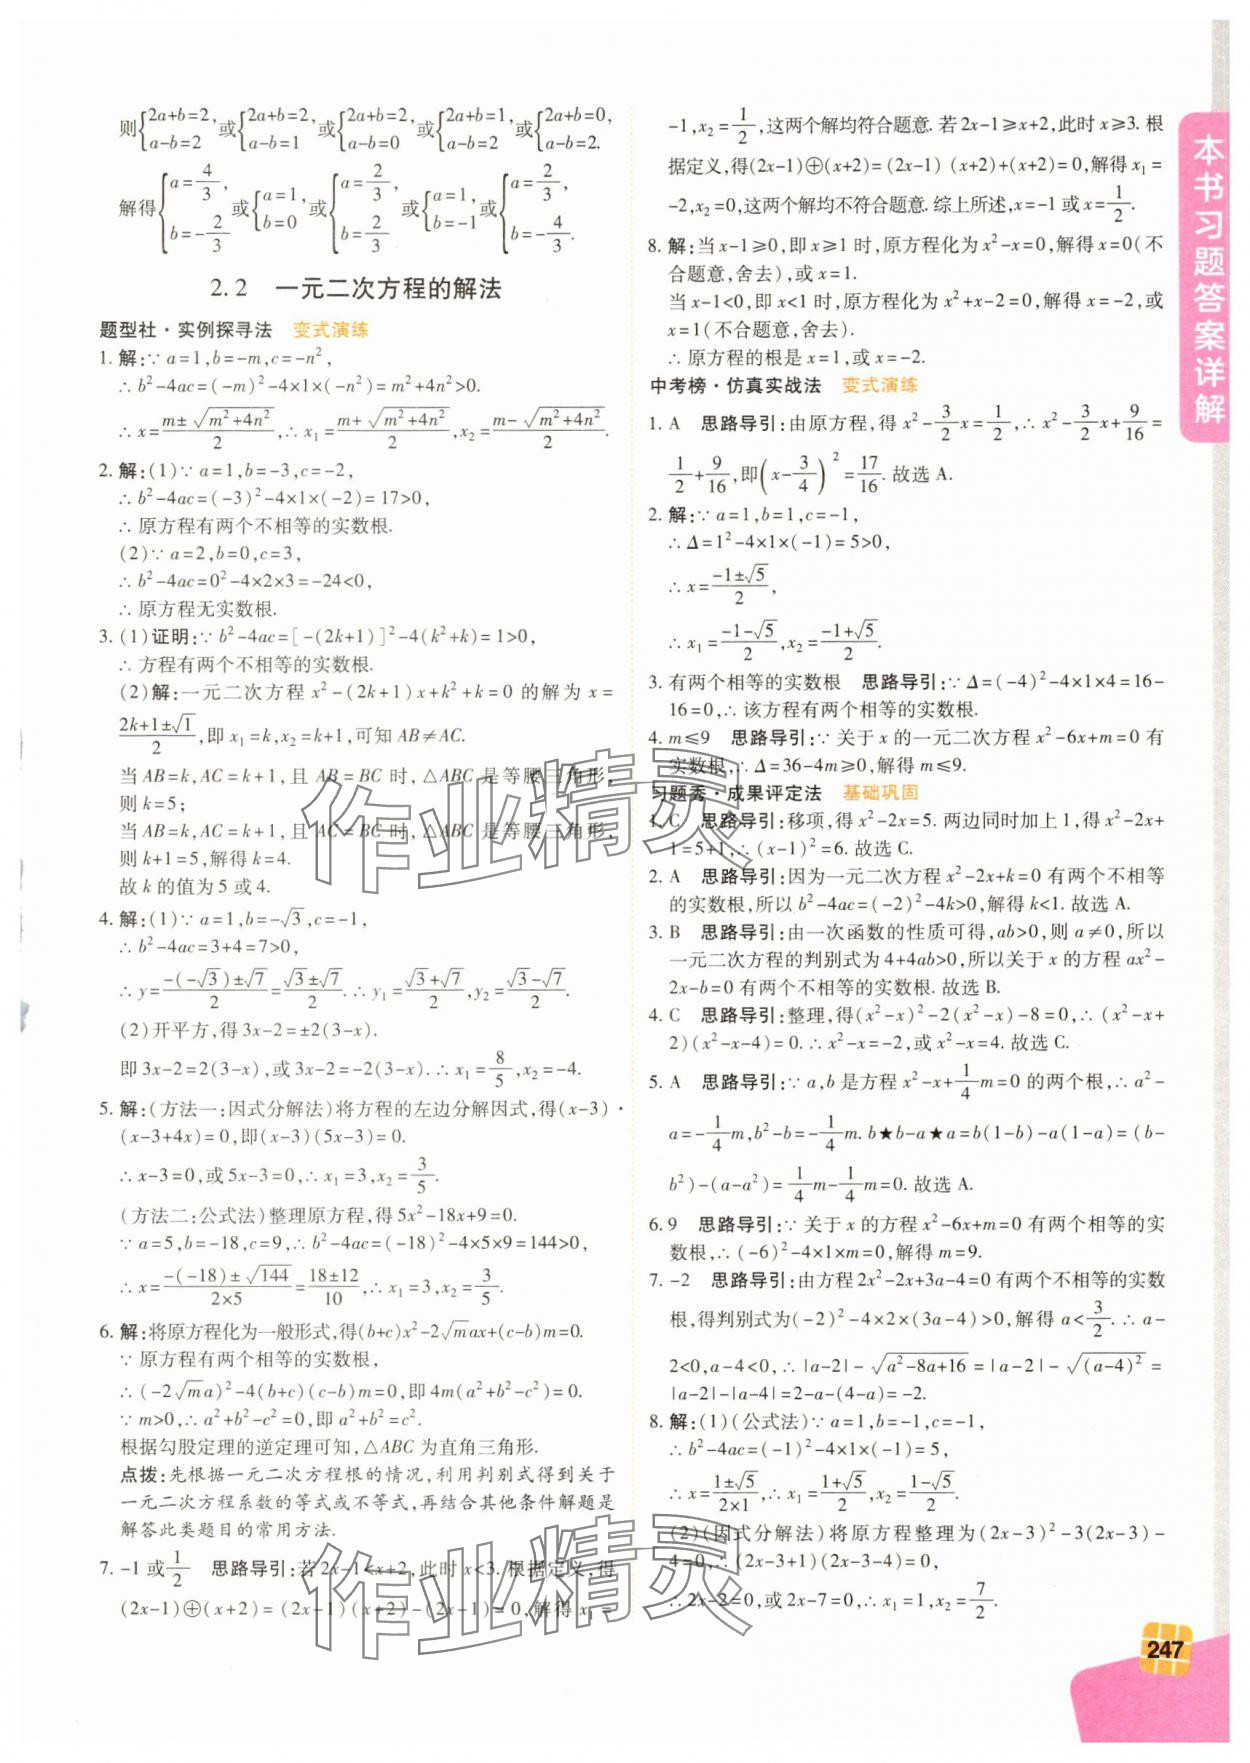 则{2a+b=2, a-b=2 或{2a+b=2, a-b=1 或{2a+b=2, a-b=0 或{2a+b=1, a-b=2 或{2a+b=0, a-b=2.
解得{a=4/3, b=-2/3 或{a=1, b=0 或{a=2/3, b=2/3 或{a=1, b=-1 或{a=2/3, b=-4/3.
2.2 一元二次方程的解法
题型社·实例探寻法 变式演练
1. 解:∵a=1,b=-m,c=-n²,
∴b²-4ac=(-m)²-4×1×(-n²)=m²+4n²>0.
∴x=(m±√(m²+4n²))/2,∴x₁=(m+√(m²+4n²))/2,x₂=(m-√(m²+4n²))/2.
2. 解:(1)∵a=1,b=-3,c=-2,
∴b²-4ac=(-3)²-4×1×(-2)=17>0,
∴原方程有两个不相等的实数根.
(2)∵a=2,b=0,c=3,
∴b²-4ac=0²-4×2×3=-24<0,
∴原方程无实数根.
3. (1)证明:∵b²-4ac=[-(2k+1)]²-4(k²+k)=1>0,
∴方程有两个不相等的实数根.
(2)解:一元二次方程 x²-(2k+1)x+k²+k=0 的解为 x=
(2k+1±√1)/2,即 x₁=k,x₂=k+1,可知 AB≠AC.
当 AB=k,AC=k+1,且 AB=BC 时,△ABC 是等腰三角形,
则 k=5;
当 AB=k,AC=k+1,且 AC=BC 时,△ABC 是等腰三角形,
则 k+1=5,解得 k=4.
故 k 的值为 5 或 4.
4. 解:(1)∵a=1,b=-√3,c=-1,
∴b²-4ac=3+4=7>0,
∴y=(-(-√3)±√7)/2=(√3±√7)/2.∴y₁=(√3+√7)/2,y₂=(√3-√7)/2.
(2)开平方,得 3x-2=±2(3-x).
即 3x-2=2(3-x),或 3x-2=-2(3-x).∴x₁=8/5,x₂=-4.
5. 解:(方法一:因式分解法)将方程的左边分解因式,得(x-3)·
(x-3+4x)=0,即(x-3)(5x-3)=0.
∴x-3=0,或 5x-3=0,∴x₁=3,x₂=3/5.
(方法二:公式法)整理原方程,得 5x²-18x+9=0.
∵a=5,b=-18,c=9,∴b²-4ac=(-18)²-4×5×9=144>0,
∴x=(-(-18)±√144)/(2×5)=(18±12)/10,∴x₁=3,x₂=3/5.
6. 解:将原方程化为一般形式,得(b+c)x²-2√m ax+(c-b)m=0.
∵原方程有两个相等的实数根,
∴(-2√m a)²-4(b+c)(c-b)m=0,即 4m(a²+b²-c²)=0.
∵m>0,∴a²+b²-c²=0,即 a²+b²=c².
根据勾股定理的逆定理可知,△ABC 为直角三角形.
点拨:先根据一元二次方程根的情况,利用判别式得到关于
一元二次方程系数的等式或不等式,再结合其他条件解题是
解答此类题目的常用方法.
7. -1 或 1/2 思路导引:若 2x-1<x+2,此时 x<3. 根据定义,得
(2x-1)⊕(x+2)=(2x-1)(x+2)-(2x-1)=0,解得 x₁=
-1,x₂=1/2,这两个解均符合题意. 若 2x-1≥x+2,此时 x≥3. 根
据定义,得(2x-1)⊕(x+2)=(2x-1)(x+2)+(x+2)=0,解得 x₁=
-2,x₂=0,这两个解均不符合题意. 综上所述,x=-1 或 x=1/2.
8. 解:当 x-1≥0,即 x≥1 时,原方程化为 x²-x=0,解得 x=0(不
合题意,舍去),或 x=1.
当 x-1<0,即 x<1 时,原方程化为 x²+x-2=0,解得 x=-2,或
x=1(不合题意,舍去).
∴原方程的根是 x=1,或 x=-2.
中考榜·仿真实战法 变式演练
1. A 思路导引:由原方程,得 x²-3/2x=1/2,∴x²-3/2x+9/16=
1/2+9/16,即(x-3/4)²=17/16. 故选 A.
2. 解:∵a=1,b=1,c=-1,
∴Δ=1²-4×1×(-1)=5>0,
∴x=(-1±√5)/2,
∴x₁=(-1-√5)/2,x₂=(-1+√5)/2.
3. 有两个相等的实数根 思路导引:∵Δ=(-4)²-4×1×4=16-
16=0,∴该方程有两个相等的实数根.
4. m≤9 思路导引:∵关于 x 的一元二次方程 x²-6x+m=0 有
实数根,∴Δ=36-4m≥0,解得 m≤9.
习题秀·成果评定法 基础巩固
1. C 思路导引:移项,得 x²-2x=5. 两边同时加上 1,得 x²-2x+
1=5+1,∴(x-1)²=6. 故选 C.
2. A 思路导引:因为一元二次方程 x²-2x+k=0 有两个不相等
的实数根,所以 b²-4ac=(-2)²-4k>0,解得 k<1. 故选 A.
3. B 思路导引:由一次函数的性质可得,ab>0,则 a≠0,所以
一元二次方程的判别式为 4+4ab>0,所以关于 x 的方程 ax²-
2x-b=0 有两个不相等的实数根. 故选 B.
4. C 思路导引:整理,得(x²-x)²-2(x²-x)-8=0,∴(x²-x+
2)(x²-x-4)=0.∴x²-x=-2,或 x²-x=4. 故选 C.
5. A 思路导引:∵a,b 是方程 x²-x+1/4m=0 的两个根,∴a²-
a=-1/4m,b²-b=-1/4m. b★b-a★a=b(1-b)-a(1-a)=(b-
b²)-(a-a²)=1/4m-1/4m=0. 故选 A.
6. 9 思路导引:∵关于 x 的方程 x²-6x+m=0 有两个相等的实
数根,∴(-6)²-4×1×m=0,解得 m=9.
7. -2 思路导引:由方程 2x²-2x+3a-4=0 有两个不相等的实数
根,得判别式为(-2)²-4×2×(3a-4)>0,解得 a<3/2.∴a-
2<0,a-4<0,∴|a-2|-√(a²-8a+16)=|a-2|-√((a-4)²)=
|a-2|-|a-4|=2-a-(4-a)=-2.
8. 解:(1)(公式法)∵a=1,b=-1,c=-1,
∴b²-4ac=(-1)²-4×1×(-1)=5,
∴x=(1±√5)/(2×1),∴x₁=(1+√5)/2,x₂=(1-√5)/2.
(2)(因式分解法)将原方程整理为(2x-3)²-3(2x-3)-
4=0,∴(2x-3+1)(2x-3-4)=0,
∴2x-2=0,或 2x-7=0,∴x₁=1,x₂=7/2.
本书习题答案详解
247
作业精灵
作业精灵